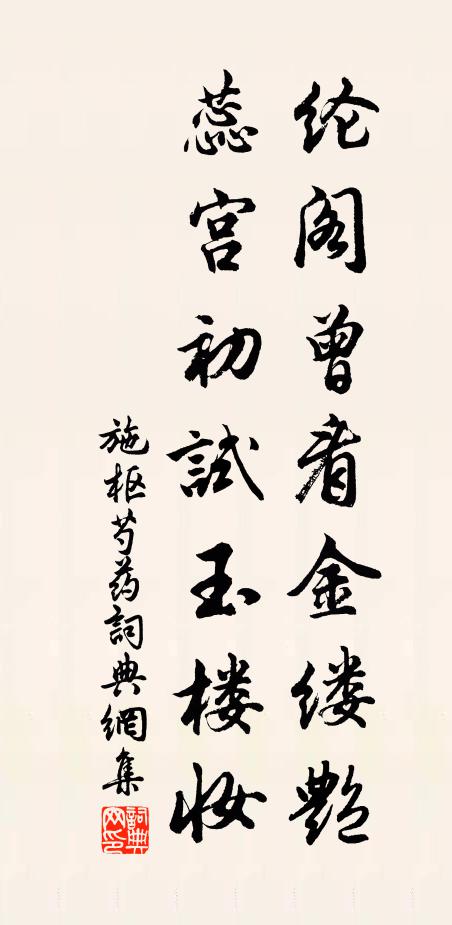 纶阁曾看金缕艳
蕊宫初試玉楼妆
施枢芍药詞典網集
詞典网印